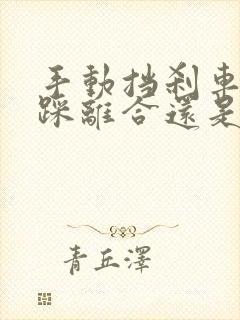 手動挡刹車
踩離合還是
青丘澤